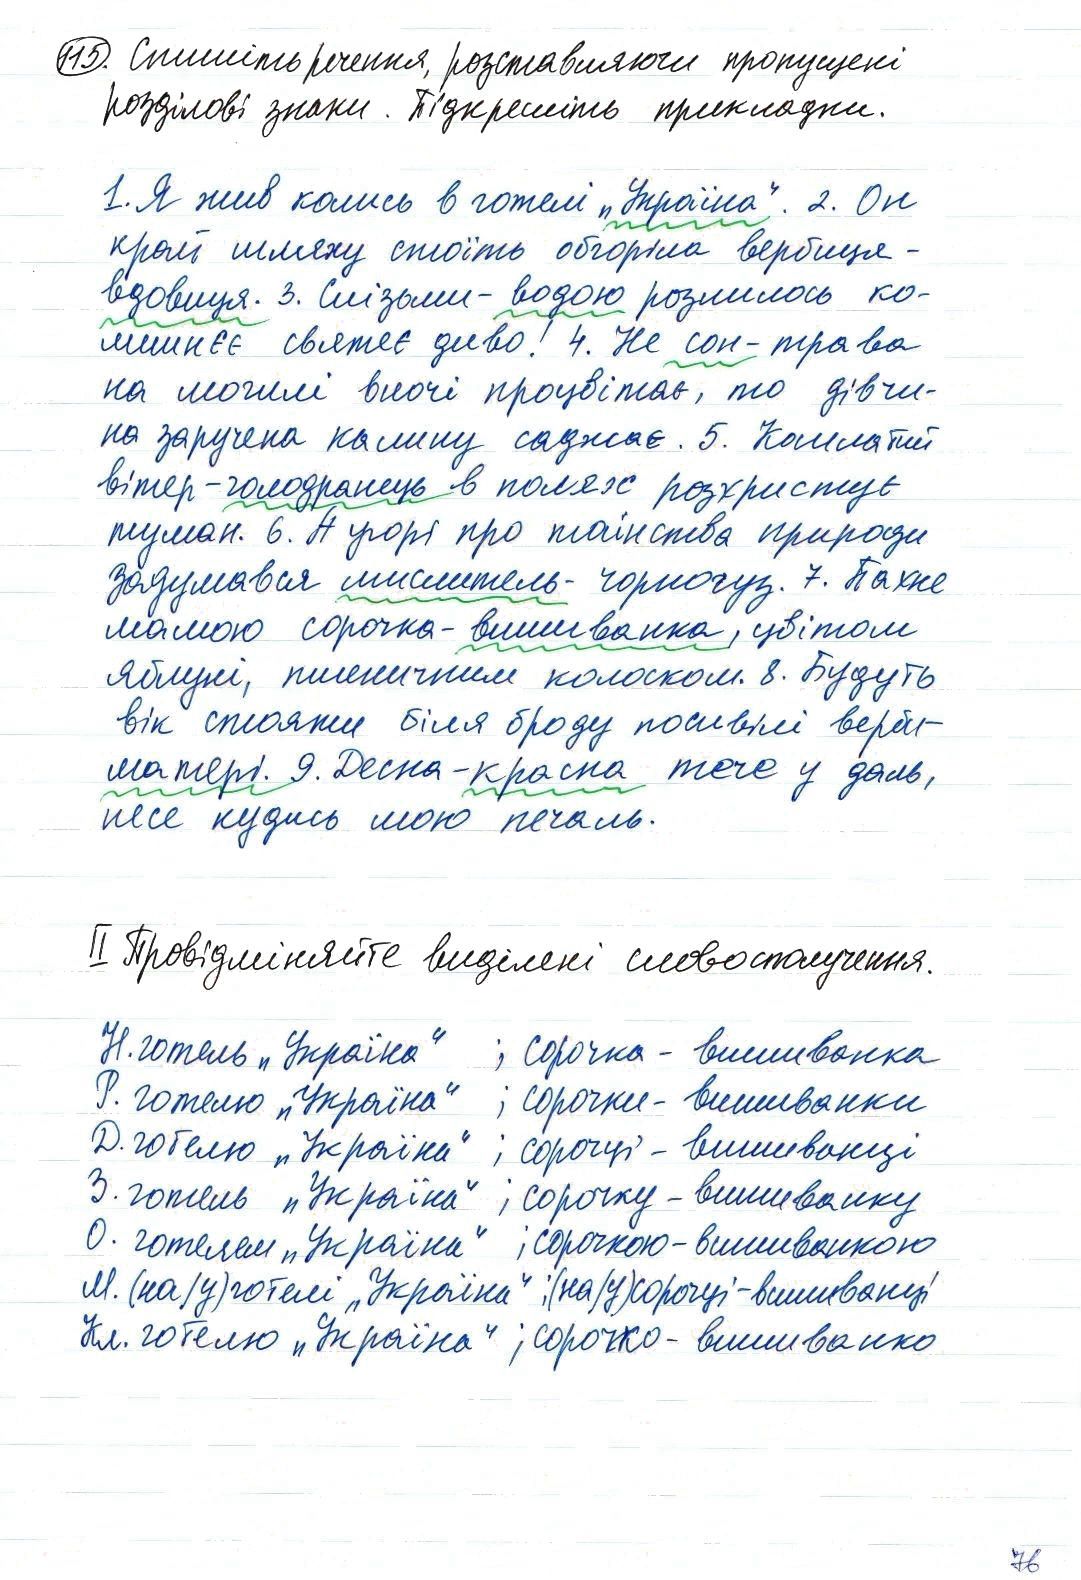 115. Спишіть речення, розставляючи пропущені
розділові знаки. Підкресліть прикладки.
1. Я жив колись в готелі „Україна“. 2. Он
край шляху стоїть обгоріла вербиця-
вдовиця. 3. Слізьми-водою розлилось ко-
лишнєє святеє диво! 4. Не сон-трава
на могилі вночі процвітає, то дівчи-
на заручена калину саджає. 5. Кошлатий
вітер-голодранець в полях розхристує
туман. 6. Угорі про таїнства природи
задумався мислитель-чорногуз. 7. Пахне
мамою сорочка-вишиванка, цвітом
яблуні, пшеничним колоском. 8. Будуть
вік стояти біля броду посивілі верби-
матері. 9. Десна-красна тече у даль,
несе кудись мою печаль.
II Провідміняйте виділені словосполучення.
Н. готель „Україна“ ; сорочка-вишиванка
Р. готелю „Україна“ ; сорочки-вишиванки
Д. готелю „Україна“ ; сорочці-вишиванці
З. готель „Україна“ ; сорочку-вишиванку
О. готелем „Україна“ ; сорочкою-вишиванкою
М. (на/у) готелі „Україна“ ; (на/у) сорочці-вишиванці
Кл. готелю „Україна“ ; сорочко-вишиванко
76